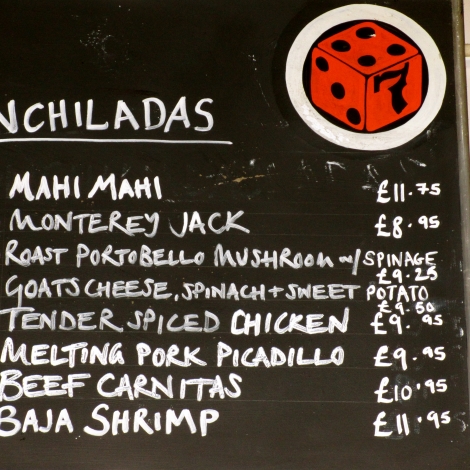 NCHILADAS
7
MAHI MAHI £11.75
MONTEREY JACK £8.95
ROAST PORTOBELLO MUSHROOM w/ SPINAGE
£9.25
GOATS CHEESE, SPINACH + SWEET POTATO
£9.50
TENDER SPICED CHICKEN £9.95
MELTING PORK PICADILLO £9.95
BEEF CARNITAS £10.95
BAJA SHRIMP £11.95